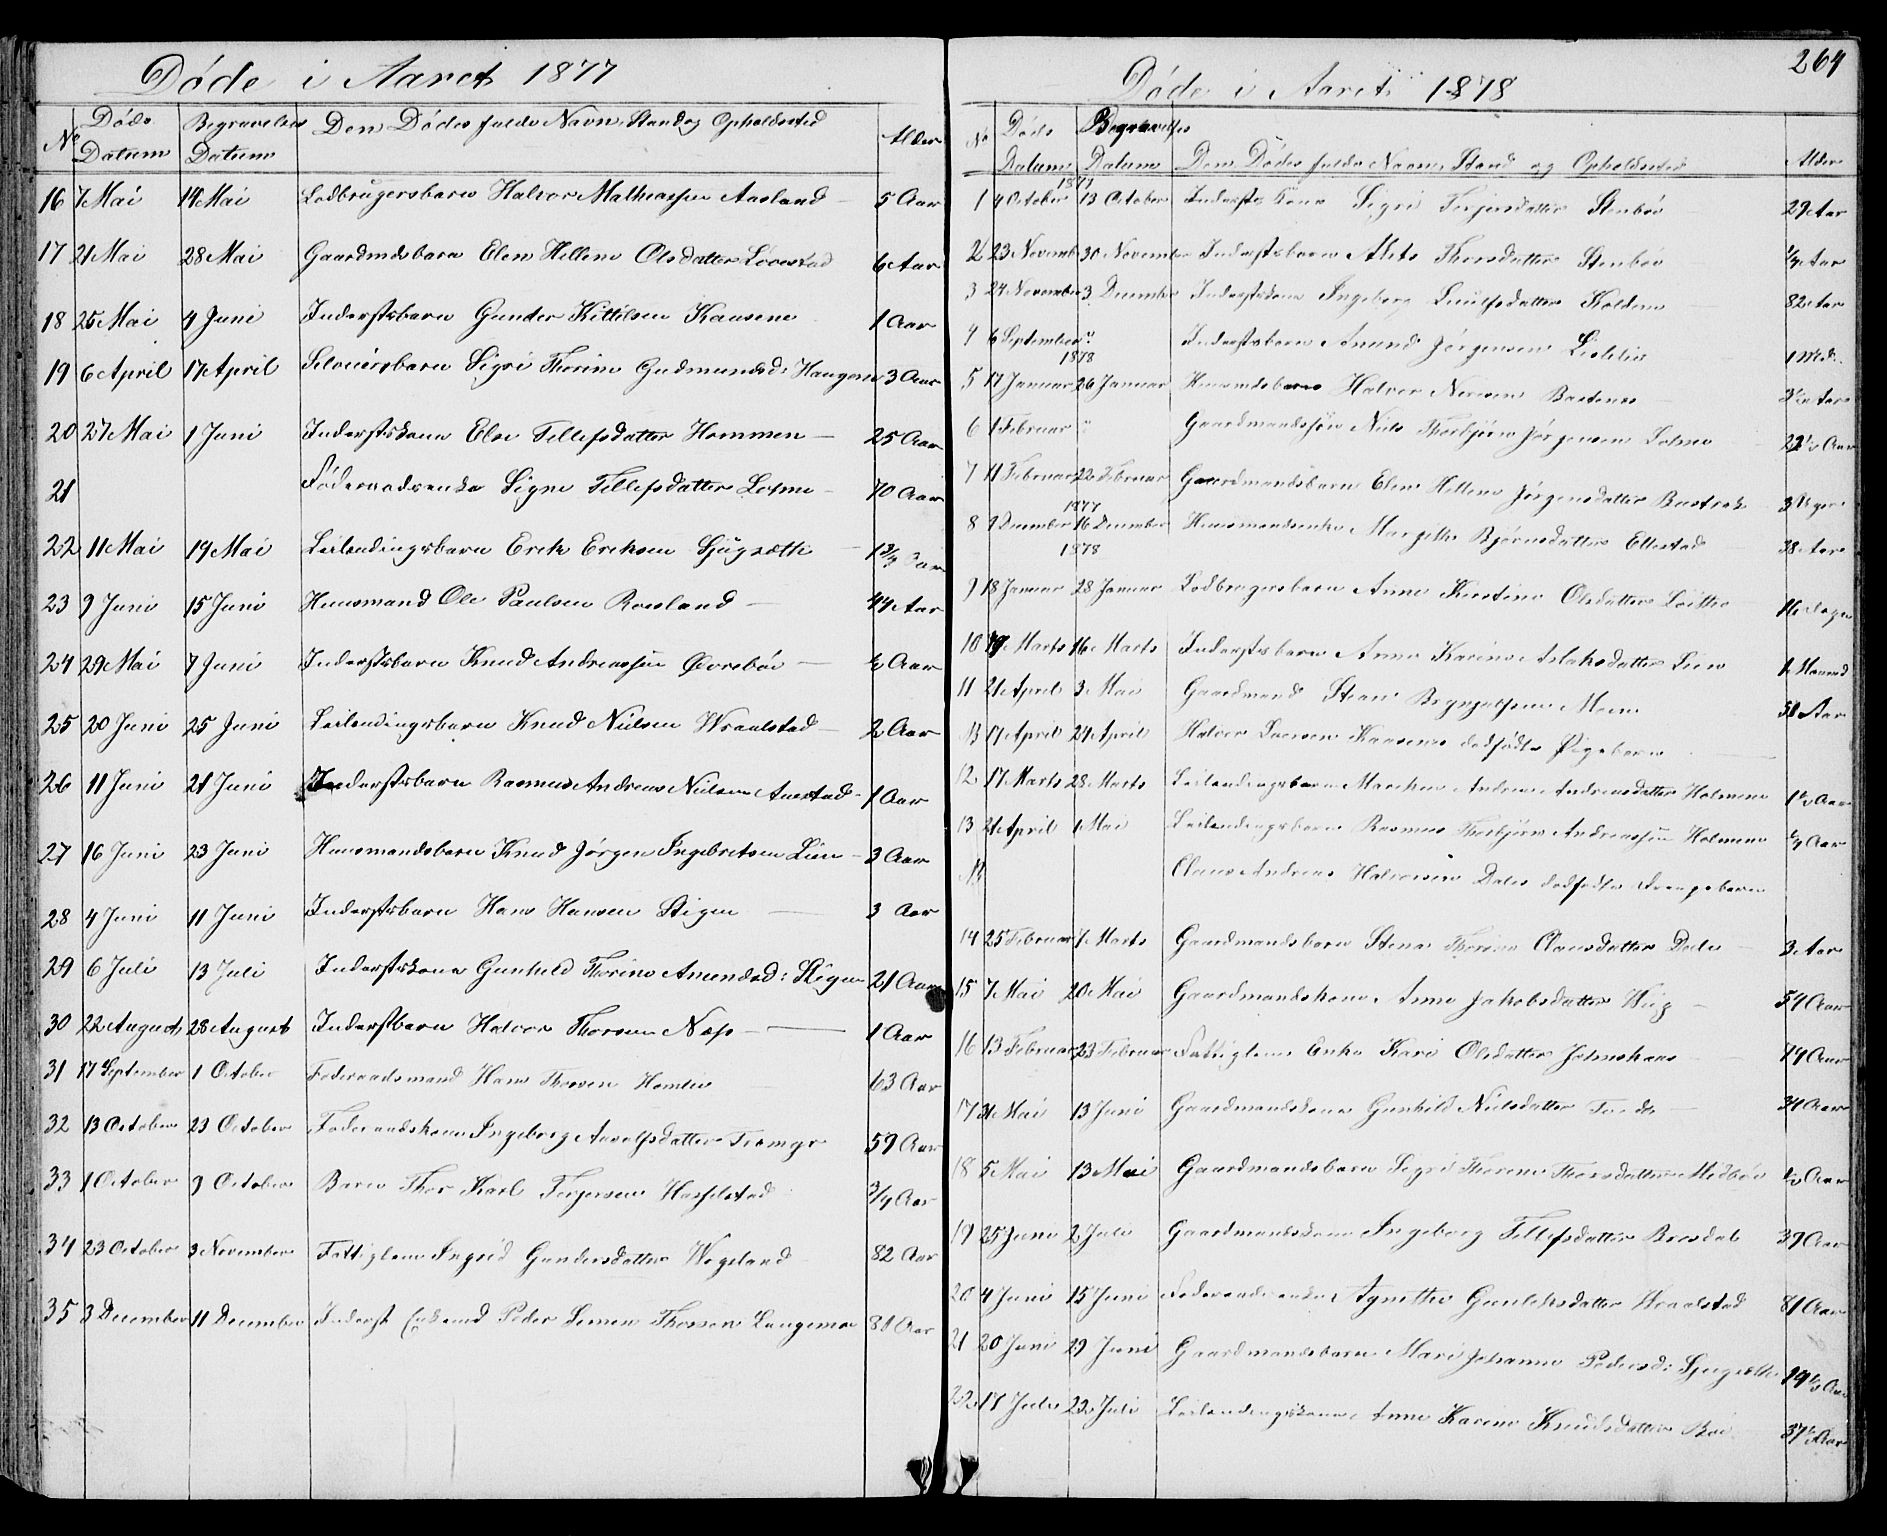 Døde i Aaret 1877
No Døds Datum Begravelses Datum Den Dødes fulde Navn, Stand og Opholdssted Alder
16 7 Mai 14 Mai Lodbrugersbarn Halvor Mathiassen Aasland 5 Aar
17 21 Mai 28 Mai Gaardmdsbarn Elen Hellene Olsdatter Lørestad 6 Aar
18 25 Mai 4 Juni Inderstsbarn Gunder Kittilsen Kaasene 1 Aar
19 6 April 17 April Selveiersbarn Sigri Thorine Gudmundsd: Haugene 3 Aar
20 27 Mai 1 Juni Inderstskone Else Tellefsdatter Hommen 25 Aar
21 Føderaadsenke Signe Tellefsdatter 70 Aar
22 11 Mai 19 Mai Leilendingsbarn Erik Eriksen 1 3/4 Aar
23 9 Juni 15 Juni Huusmand Ole Paulsen Roesland 44 Aar
24 29 Mai 7 Juni Inderstsbarn Knud Andreassen Øvrebøe 1/2 Aar
25 20 Juni 25 Juni Leilendingsbarn Knud Nielsen Wraalstad 2 Aar
26 11 Juni 21 Juni Inderstsbarn Rasmus Andreas Nielsen 1 Aar
27 16 Juni 23 Juni Huusmandsbarn Knud Jørgen Ingebretsen Lien 3 Aar
28 4 Juni 11 Juni Inderstsbarn Hans Hansen Stigen 3 Aar
29 6 Juli 13 Juli Inderstskone Gunhild Thorine Amundsd: Stigen 21 Aar
30 22 August 28 August Inderstbarn Halvor Thorsen Næs 1 Aar
31 17 September 1 October Føderaadsmand Hans Thorsen 63 Aar
32 13 October 23 October Føderaadskone Ingeborg Aavolfsdatter 59 Aar
33 1 October 9 October Barn Thor Karl Terjersen Hasselstad 3/4 Aar
34 23 October 3 November Fattiglem Ingrid Gundersdatter Wegeland 82 Aar
35 3 December 11 December Inderst Enkemd Peder Simen Thorsen Langemo 81 Aar
264
Døde i Aaret 1878
No Døds Datum Begravelses Datum Den Dødes fulde Navn, Stand og Opholdssted Alder
1877
1 4 October 13 October Indersts Kone Sigri Terjersdatter Stenbøe 29 Aar
2 23 Novemb 30 November Inderstsbarn Thorsdatter Stenbøe 1/4 Aar
3 24 November 3 December Inderstskone Ingeborg 82 Aar
4 6 September " Inderstsbarn Amund Jørgensen 1 Md.
1878
5 17 Januar 26 Januar Huusmdsbarn Halvor 3 1/2 Aar
6 1 Februar " Gaardmandssøn Niels Thorbjørn Jørgensen 22 1/2 Aar
7 11 Februar 22 Februar Gaardmandsbarn Elen Hellene Jørgensdatter 3 Uger
1877
8 9 December 16 December Huusmandsenke Margith Bjørnsdatter Ellestad 38 Aar
1878
9 18 Januar 28 Januar Lodbrugersbarn Anne Kirstine Olsdatter 16 Dage
10 9 Marts 16 Marts Inderstsbarn Anne Karine Aslaksdatter Lien 1 Maaned
11 21 April 3 Mai Gaardmand Steen Brynjulfsen Moen 51 Aar
N 17 April 24 April Halvor Larsen Kaasenes dødfødte Pigebarn
12 17 Marts 28 Marts Leilendingsbarn Andrea Andreasdatter Holmene 1 1/2 Aar
13 21 April 1 Mai Leilendingsbarn Rasmus Thorbjørn Andreassen Holmene 1/4 Aar
N Claus Andreas Halvorsen Dales dødfødte Drengebarn
14 25 Februar 7 Marts Gaardmandsbarn Stena Thorine Clausdatter Dale 3 Aar
15 7 Mai 20 Mai Gaardmandskone Anne Jakobsdatter Wiig 54 Aar
16 13 Februar 23 Februar Fattiglem Enke Kari Olsdatter 74 Aar
17 31 Mai 13 Juni Gaardmandskone Gunhild Nielsdatter 34 Aar
18 5 Mai 13 Mai Gaardmandsbarn Sigri Thorine Thorsdatter Midbøe 1/2 Aar
19 25 Juni 2 Juli Gaardmandskone Ingeborg Tellefsdatter Bresdal 39 Aar
20 4 Juni 15 Juni Føderaadsenke Agnethe Gunleksdatter Wraalstad 81 Aar
21 20 Juni 29 Juni Gaardmandsbarn Mari Johanne Pedersd: 14 1/2 Aar
22 17 Juli 22 Juli Leilendingskone Anne Karine Knudsdatter Bøe 37 1/2 Aar